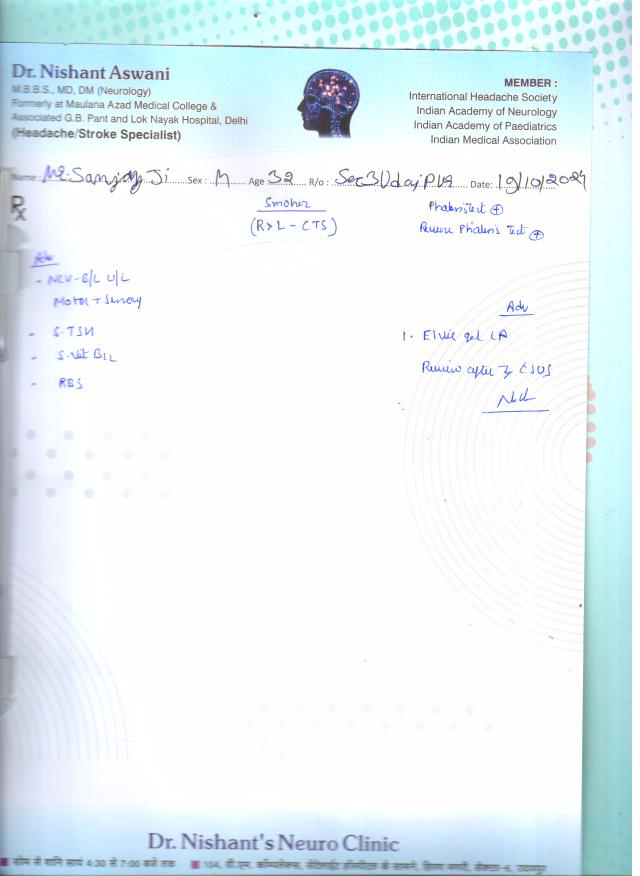 Dr. Nishant Aswani
M.B.B.S., MD, DM (Neurology)
Formerly at Maulana Azad Medical College &
Associated G.B. Pant and Lok Nayak Hospital, Delhi
(Headache/Stroke Specialist)
MEMBER :
International Headache Society
Indian Academy of Neurology
Indian Academy of Paediatrics
Indian Medical Association
Name: Mr. Sanjay Ji Sex : M Age 32 R/o : Sec 3 Udaipur Date: 19/10/2024
Rx
Smoker
(R>L - CTS)
Phalens Test +
Reverse Phalen's Test +
Adv
- NCV - B/L U/L
Motor + Sensory
- S. TSH
- S. Vit B12
- RBS
Adv
1. gel LA
Review after
Dr. Nishant's Neuro Clinic
सोम से शनि सायं 4:30 से 7:00 बजे तक
104, वी.एम. कॉम्पलेक्स, सेटेलाईट हॉस्पीटल के सामने, हिरण मगरी, सेक्टर-6, उदयपुर